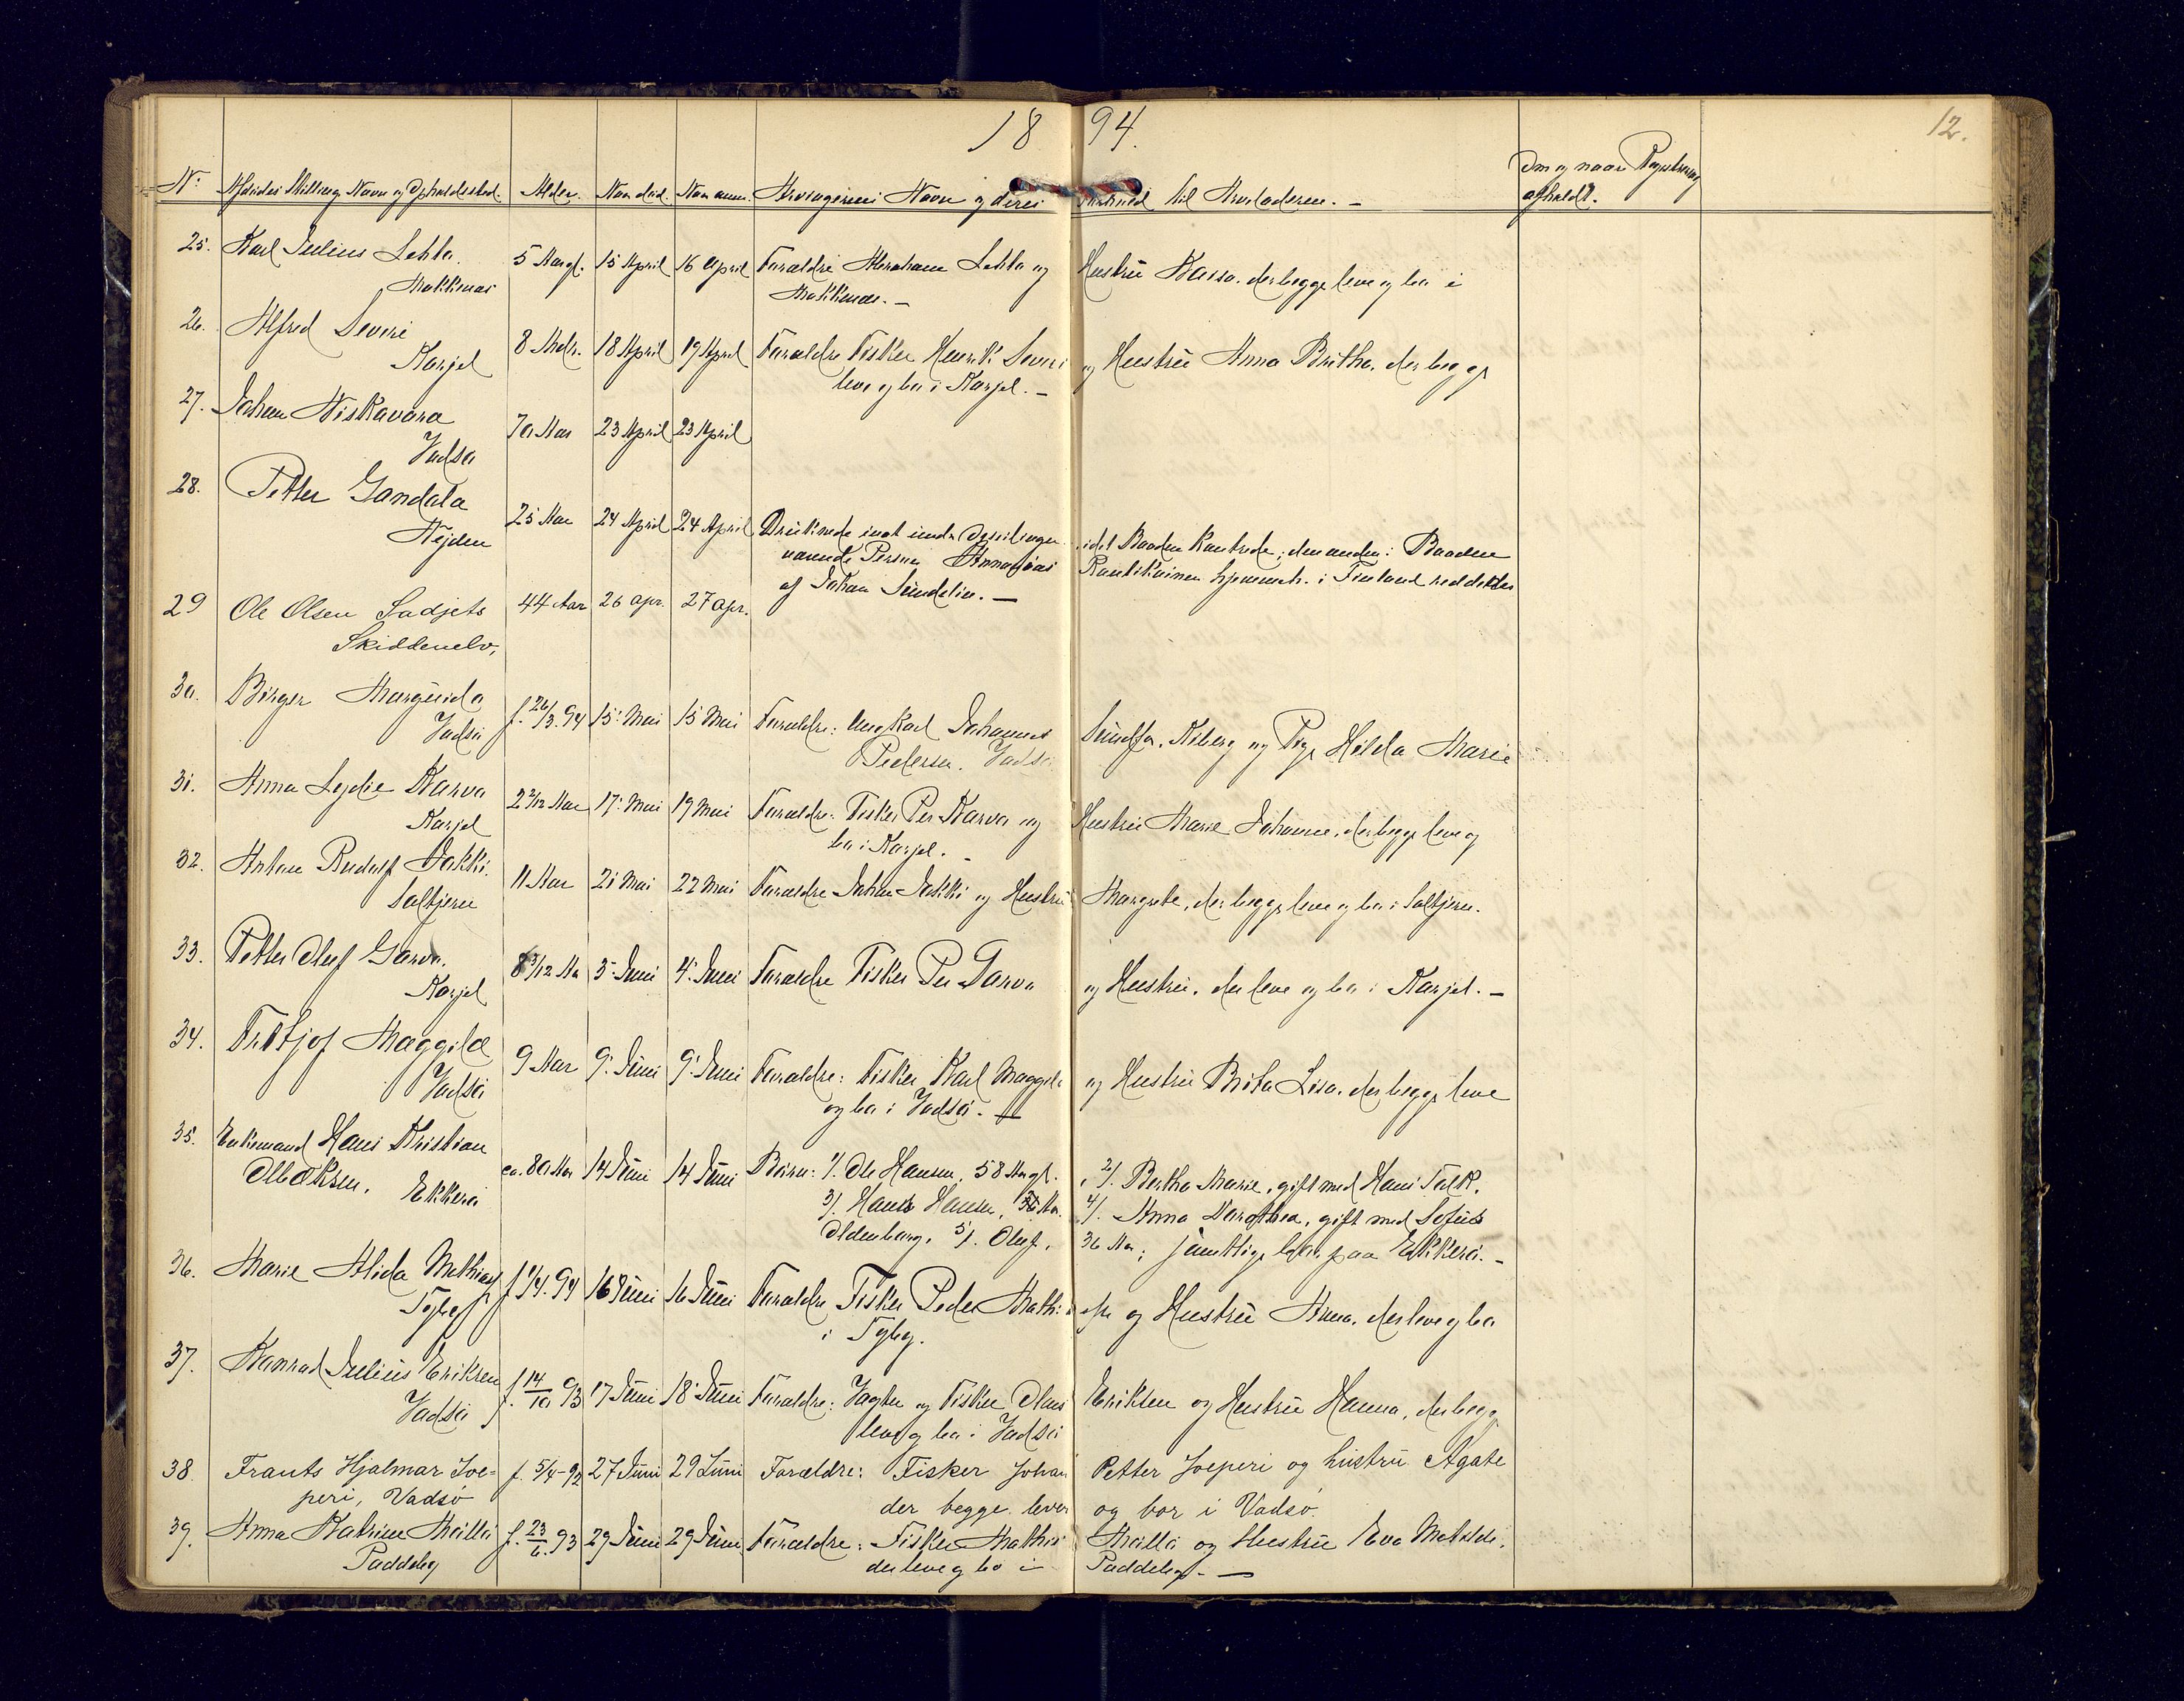 18 94.
12.
No Afdødes Stilling, Navn og Opholdssted. Alder. Naar død. Naar anm. Arvingernes Navn og deres til Arveladeren. - Om og naar Registrering afholdt.
25. Karl Julius Lehto. 5 Aar gl. 15 April 16 April Forældre Abraham Lehto og Hustru Kaisa, der begge leve og bo i
26. Alfred Severi 8 Mdr. 18 April 19 April Forældre Fisker Henrik Severi og Hustru Anna Britha, der begge
Karjel leve og bo i Karjel. -
27. Johan Niskavara 70 Aar 23 April 23 April
Vadsø
28. Petter Gandola 25 Aar 24 April 24 April Druknede idet Baaden kantrede; den anden i Baaden
Nejden værende Person i Finland reddedes
af Johan Sundelin. -
29 Ole Olsen Sadjets 44 Aar 26 apr. 27 apr.
Skiddenelv,
30. Birger Margido f. 26/3.94 15' Mai 15 Mai Forældre: Ungkarl Johannes Kiberg og Pige Hilda Marie
Vadsø Pedersen. Vadsø
31. Anna Lydie Karva 2 2/12 Aar 17' Mai 19 Mai Forældre: Fisker Per Karva og Hustru Marie Johanne, der begge leve og
Karjel bo i Karjel. -
32. Anton Rudolf Jakki. 11 Aar 21 Mai 22 Mai Forældre Johan Jakki og Hustru Margrete, der begge leve og bo i Saltjern.
Saltjern
33. Petter Oluf Garva. 8 3/12 Aar 3' Juni 4' Juni Forældre Fisker Per Garva og Hustru, der leve og bo i Karjel. -
Karjel
34. Fritjof Maggila 9 Aar 9' Juni 9' Juni Forældre: Fisker Karl Maggila og Hustru Brita Lisa, der begge leve
Vadsø og bo i Vadsø. -
35. Enkemand Hans Kristian ca. 80 Aar 14 Juni 14 Juni Børn: 1/. Ole Hansen, 58 Aar gl. , 2/. Bertha Marie, gift med Hans Falk,
Ekkerø 3/. Hans Hansen, Aar. 4/. Anna Dorothea, gift med Sofus
Oldenborg, 5/. Oluf, 36 Aar; samtlige bor paa Ekkerø. -
36. Marie Alida f. 1/4.94 16 Juni 16 Juni Forældre Fisker Peder og Hustru Anna, der leve og bo
37. Konrad Julius Eriksen f. 14/10 93 17 Juni 18' Juni Forældre: og Fisker Olaus Eriksen og Hustru Hanna, der begge
Vadsø leve og bo i Vadsø
38. Frants Hjalmar Joe= f. 5/4-92 27 Juni 29 Juni Forældre: Fisker Johan Petter Joeperi og hustru Agate
peri, Vadsø der begge lever og bor i Vadsø.
39. Anna Katrine Maitta f. 23/6.93 29 Juni 29 Juni Forældre: Fisker Mathis Maitta og Hustru Eva Matilde,
Paddeby der leve og bo i Paddeby. -